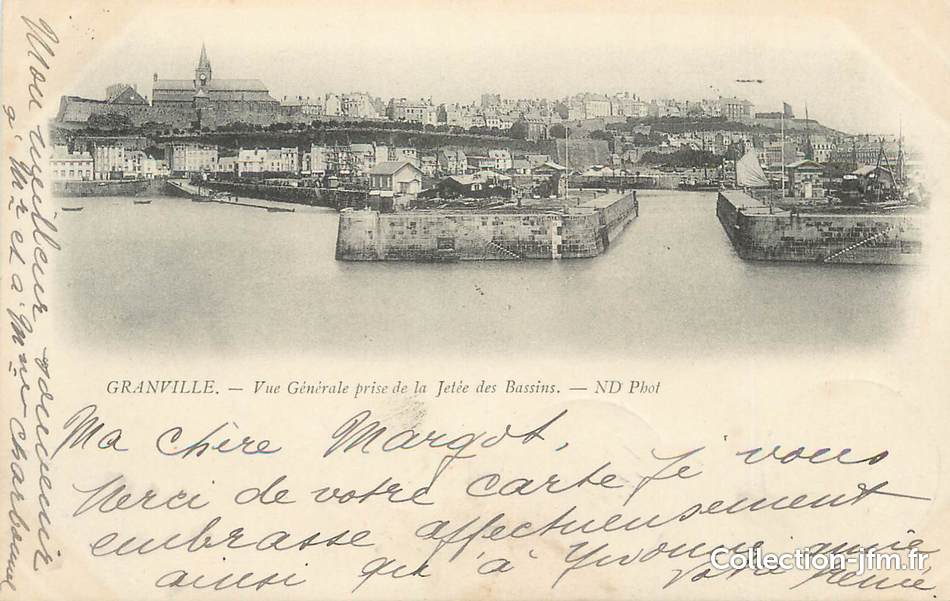 GRANVILLE. — Vue Générale prise de la Jetée des Bassins. — ND Phot
Ma chère Margot,
Merci de votre carte Je vous
embrasse affectueusement
ainsi qu'à Yvonne
votre
Mon meilleur souvenir
à Mr et à Mme Charbonnel
Collection-jfm.fr